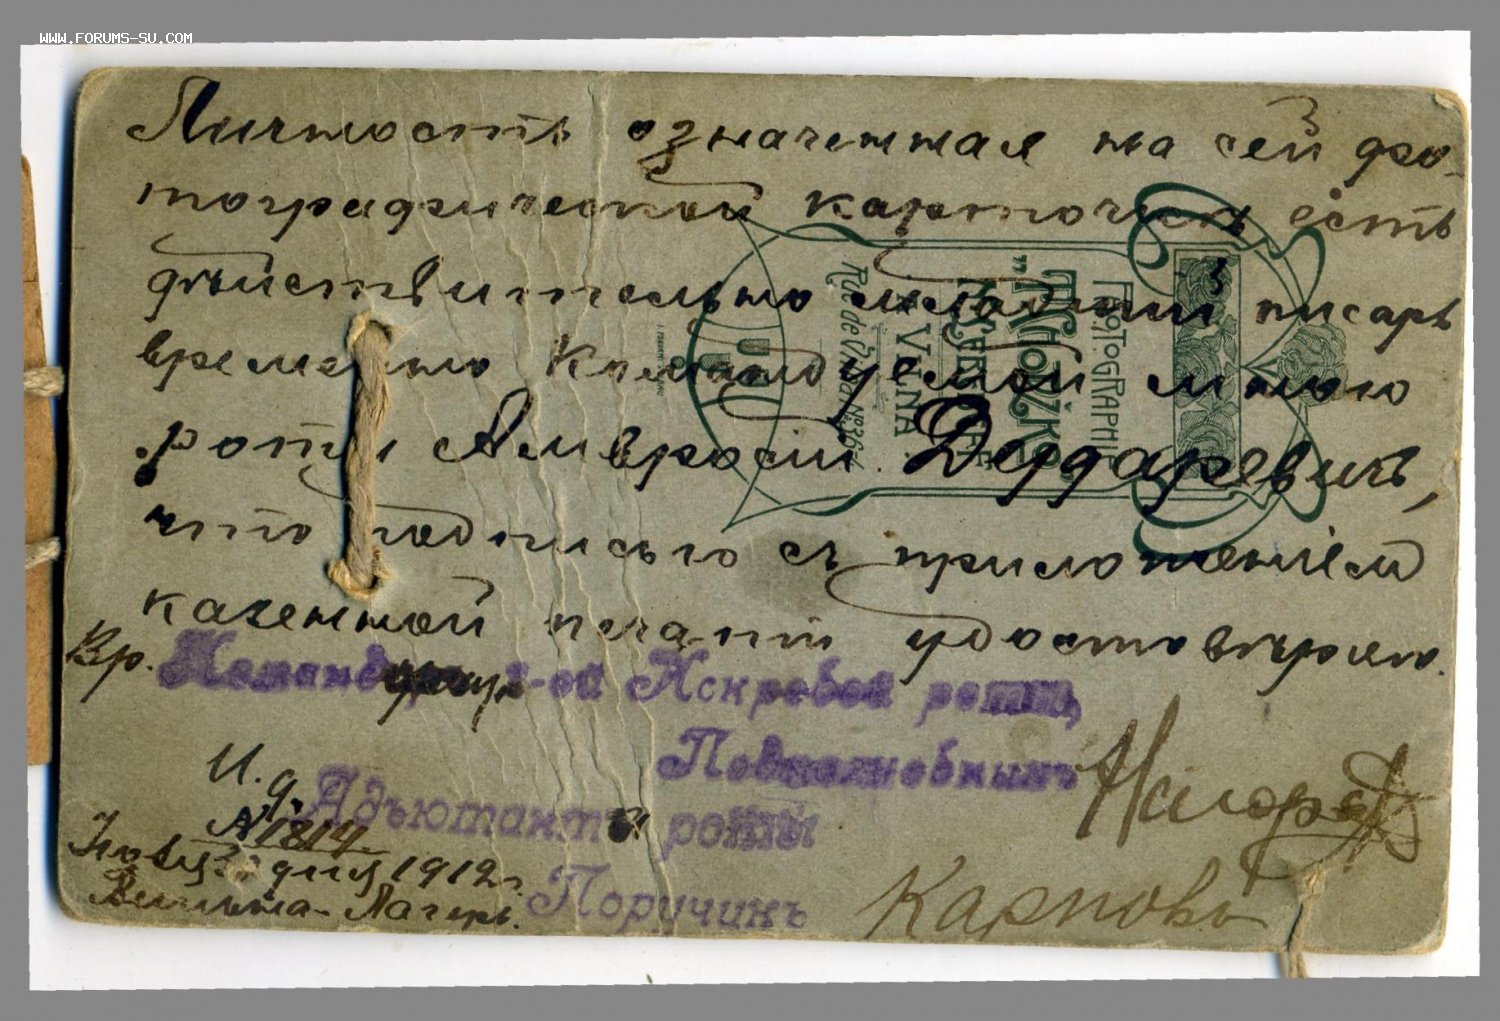 WWW.FORUMS-SU.COM
Личность означенная на сей фо-
тографической карточкѣ есть
дѣйствительно младшій писарь
временно командуемой мною
роты Амвросій Дердаревичъ,
что подписью съ приложеніем
казенной печати удостовѣряю.
Вр. Командующ -ой Искровой роты,
Подполковникъ
И. д.
Адъютанта роты
№ 1814
дня 1912 г.
Вильна-Лагерь.
Поручикъ Карповъ
PHOTOGRAPHIE
"TROÏKO"
VILNA.
Rue de Vilna